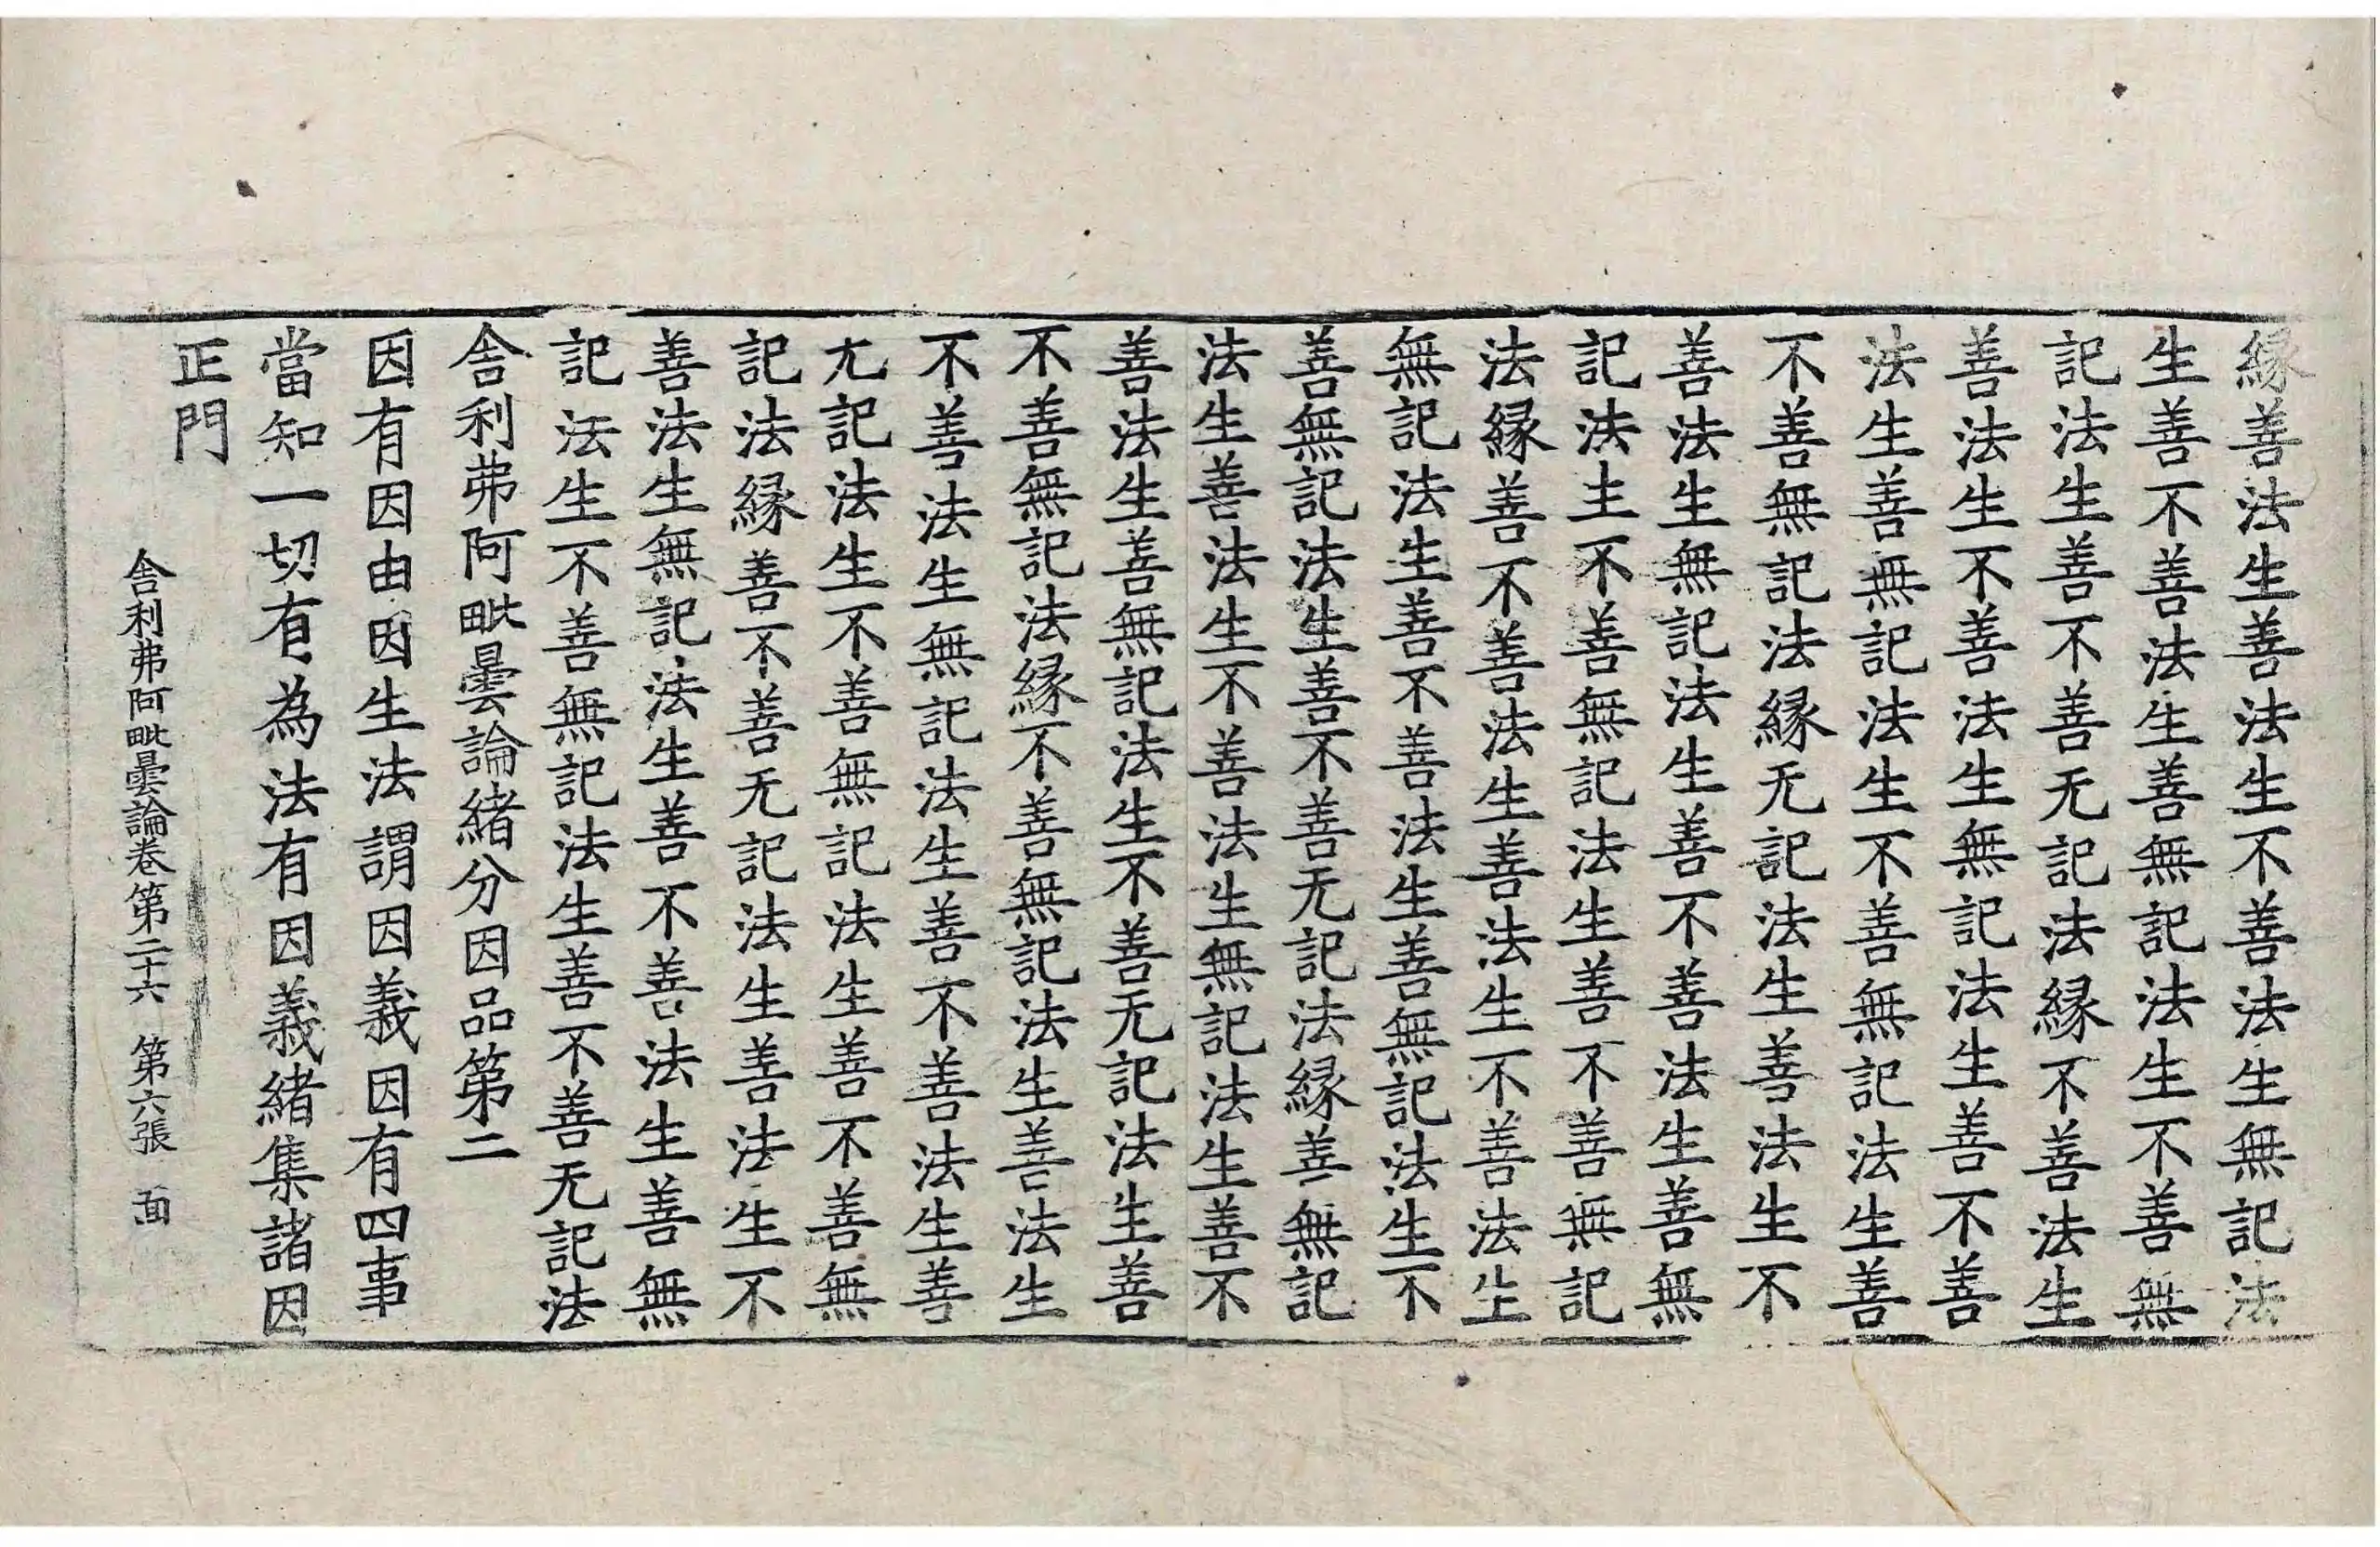 縁善法生善法生不善法生無記法
生善不善法生善無記法生不善無
記法生善不善无記法縁不善法生
善法生不善法生無記法生善不善
法生善無記法生不善無記法生善
不善無記法縁无記法生善法生不
善法生無記法生善不善法生善無
記法生不善無記法生善不善無記
法縁善不善法生善法生不善法生
無記法生善不善法生善無記法生不
善無記法生善不善无記法縁善無記
法生善法生不善法生無記法生善不
善法生善無記法生不善无記法生善
不善無記法縁不善無記法生善法生
不善法生無記法生善不善法生善
无記法生不善無記法生善不善無
記法縁善不善无記法生善法生不
善法生無記法生善不善法生善無
記法生不善無記法生善不善无記法
舎利弗阿毗曇論緒分因品第二
因有因因由因生法謂因義因有四事
當知一切有為法有因義緒集諸因
正門
舎利弗阿毗曇論卷第二十六　第六張　面